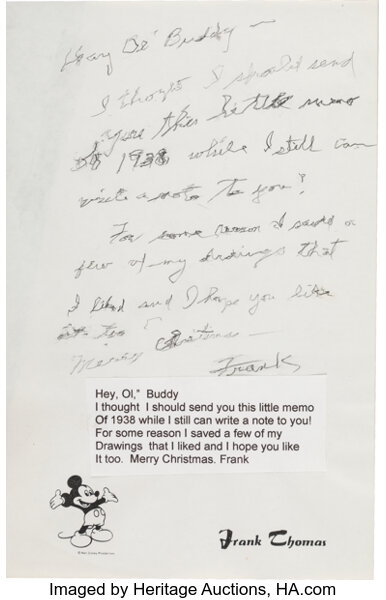 Hey Ol' Buddy —
I thought I should send
you this little memo
Of 1938 while I still can
write a note to you!
For some reason I saved a
few of my drawings that
I liked and I hope you like
it too
Merry Christmas —
Frank
Hey, Ol," Buddy
I thought I should send you this little memo
Of 1938 while I still can write a note to you!
For some reason I saved a few of my
Drawings that I liked and I hope you like
It too. Merry Christmas. Frank
Frank Thomas
Imaged by Heritage Auctions, HA.com